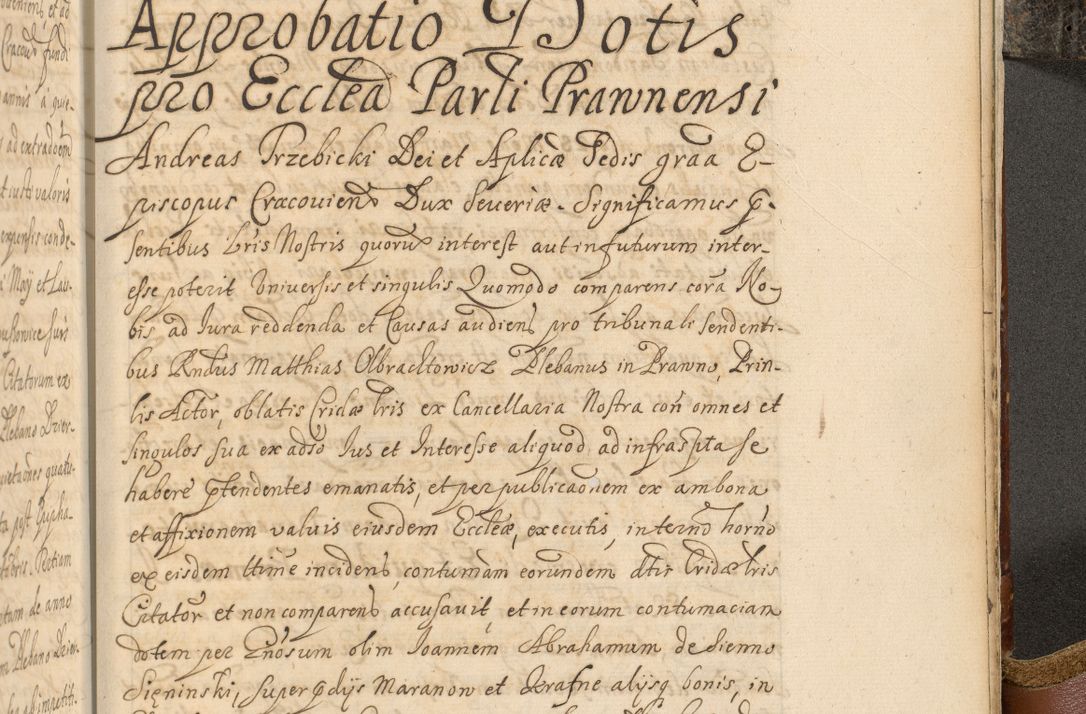 Approbatio Dotis
pro Ecclea Parli Prawnensi
Andreas Trzebicki Dei et Aplicæ Sedis graa E-
piscopus Cracovien Dux Severiæ. Significamus p-
sentibus Lris Nostris quorum interest aut in futurum inter-
esse poterit Universis et singulis Quomodo comparens cora No-
bis ad Iura reddenda et Causas audien pro tribunali sendenti-
bus Rndus Matthias Olbrachtowicz Plebanus in Prawno, Prin-
lis Actor, oblatis Cridæ Lris ex Cancellaria Nostra con omnes et
singulos sua ex adso Ius et Interesse aliquod ad infraspta se
habere ptendentes emanatis, et per publicaonem ex ambona
et affixionem valvis eiusdem Eccleæ, executis, in termo horno
ex eisdem ttime inciden, contumam eorundem dtis Cridæ Lris
Citator et non comparen accusavit, et in eorum contumaciam
dotem per Gnosum olim Ioannem Abrahamum de Sienno
Sięninski, super pdijs Maranow et Gerafne alijsq bonis, in
ovenien, et ad
Cracov fundi
annis a quie-
ad extradoem
et iusti valoris
expensis conde-
May et Lau-
Citatorum ex
Plebano Drier-
Plebano Drier-
de anno